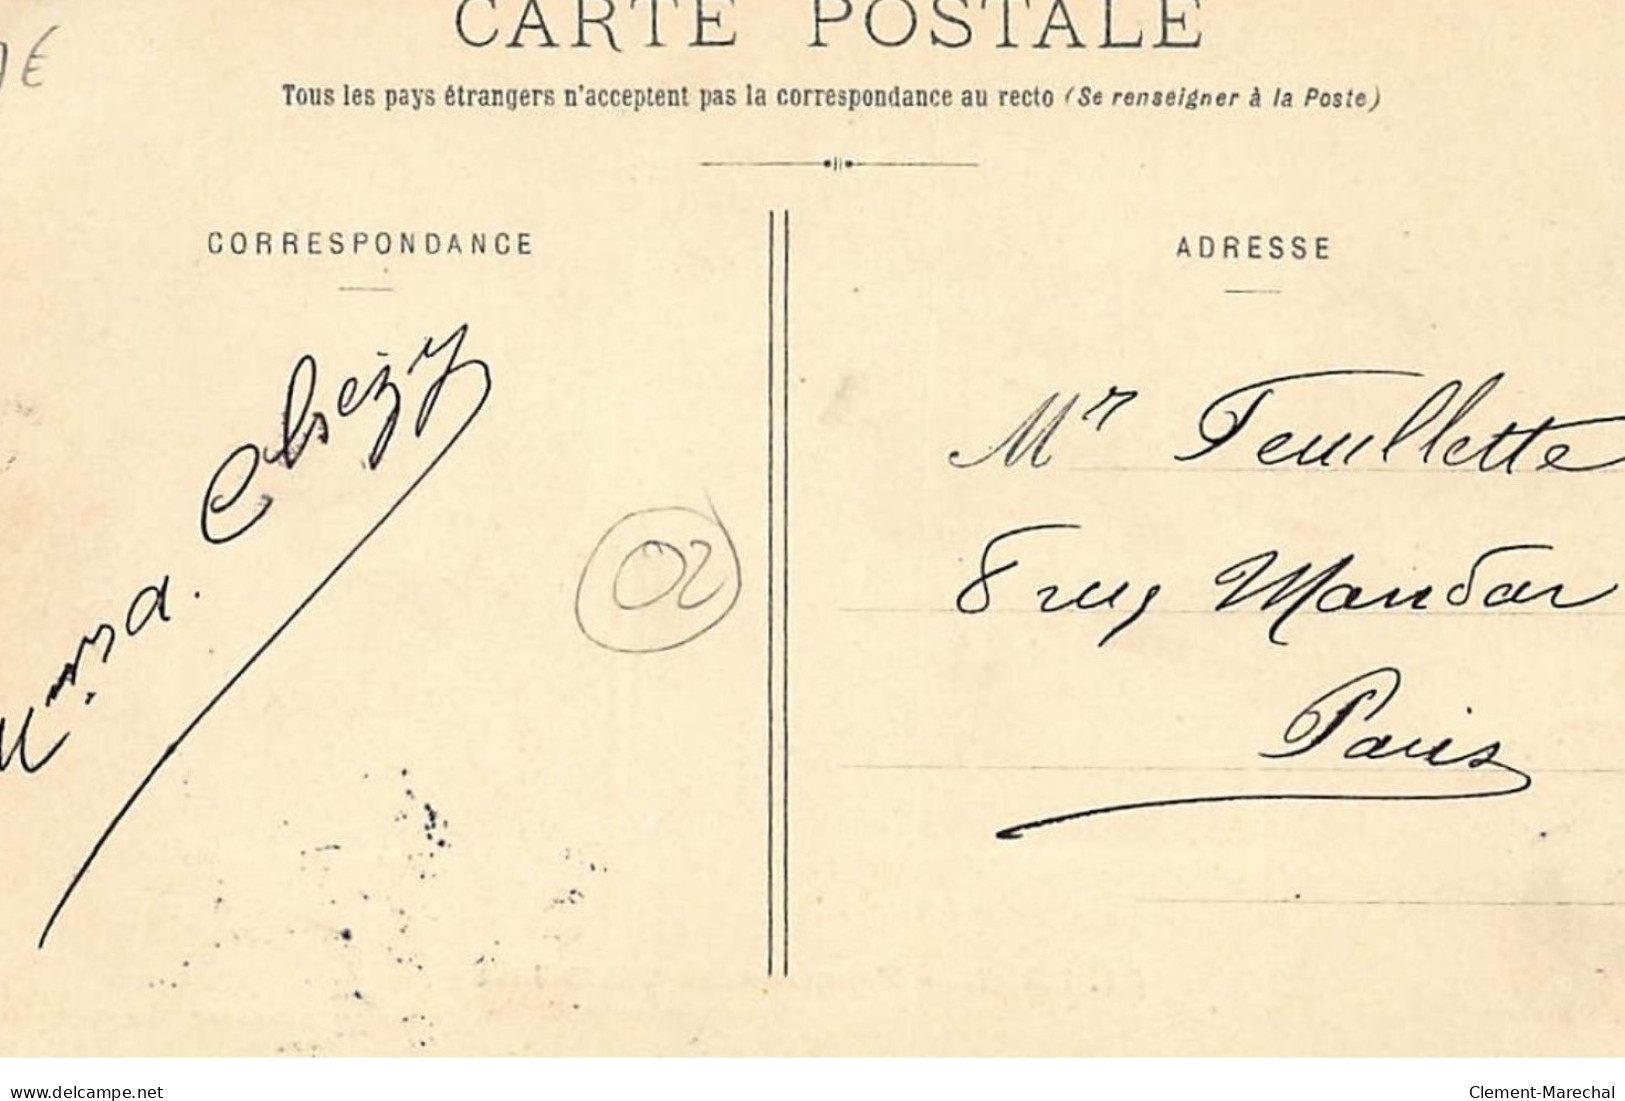 CARTE POSTALE
€
Tous les pays étrangers n'acceptent pas la correspondance au recto (Se renseigner à la Poste)
CORRESPONDANCE
ADRESSE
Mr Feuillette
8 rue Mandar
Paris
02
www.delcampe.net
Clement-Marechal